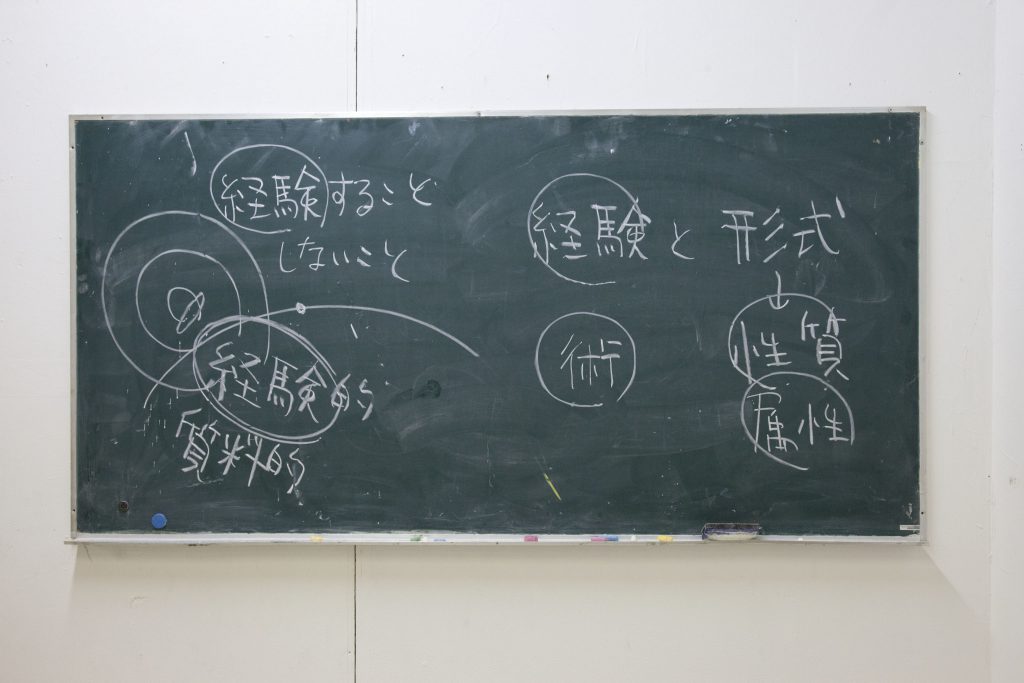 経験すること
しないこと
経験的
質料的
経験と形式
術
性質
属性